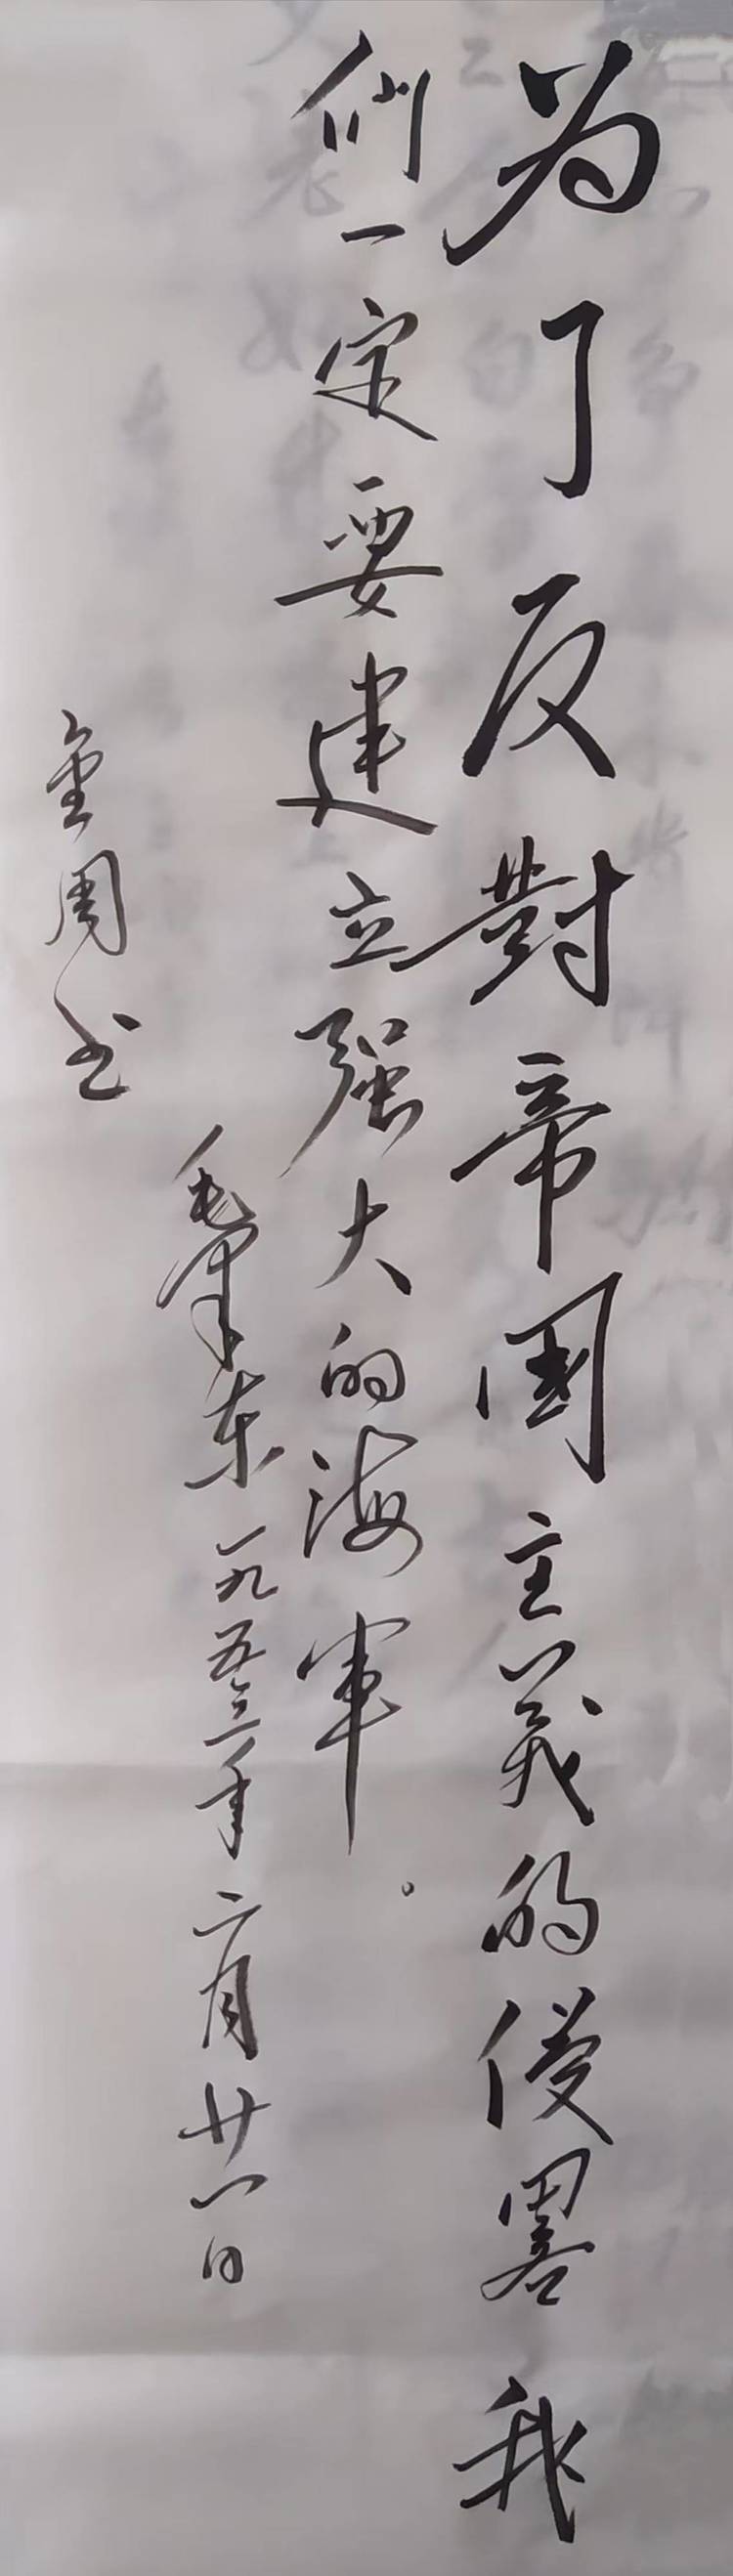 为了反對帝國主義的侵畧我
们一定要建立强大的海軍。
毛泽东一九五三年二月廿一日
金周书